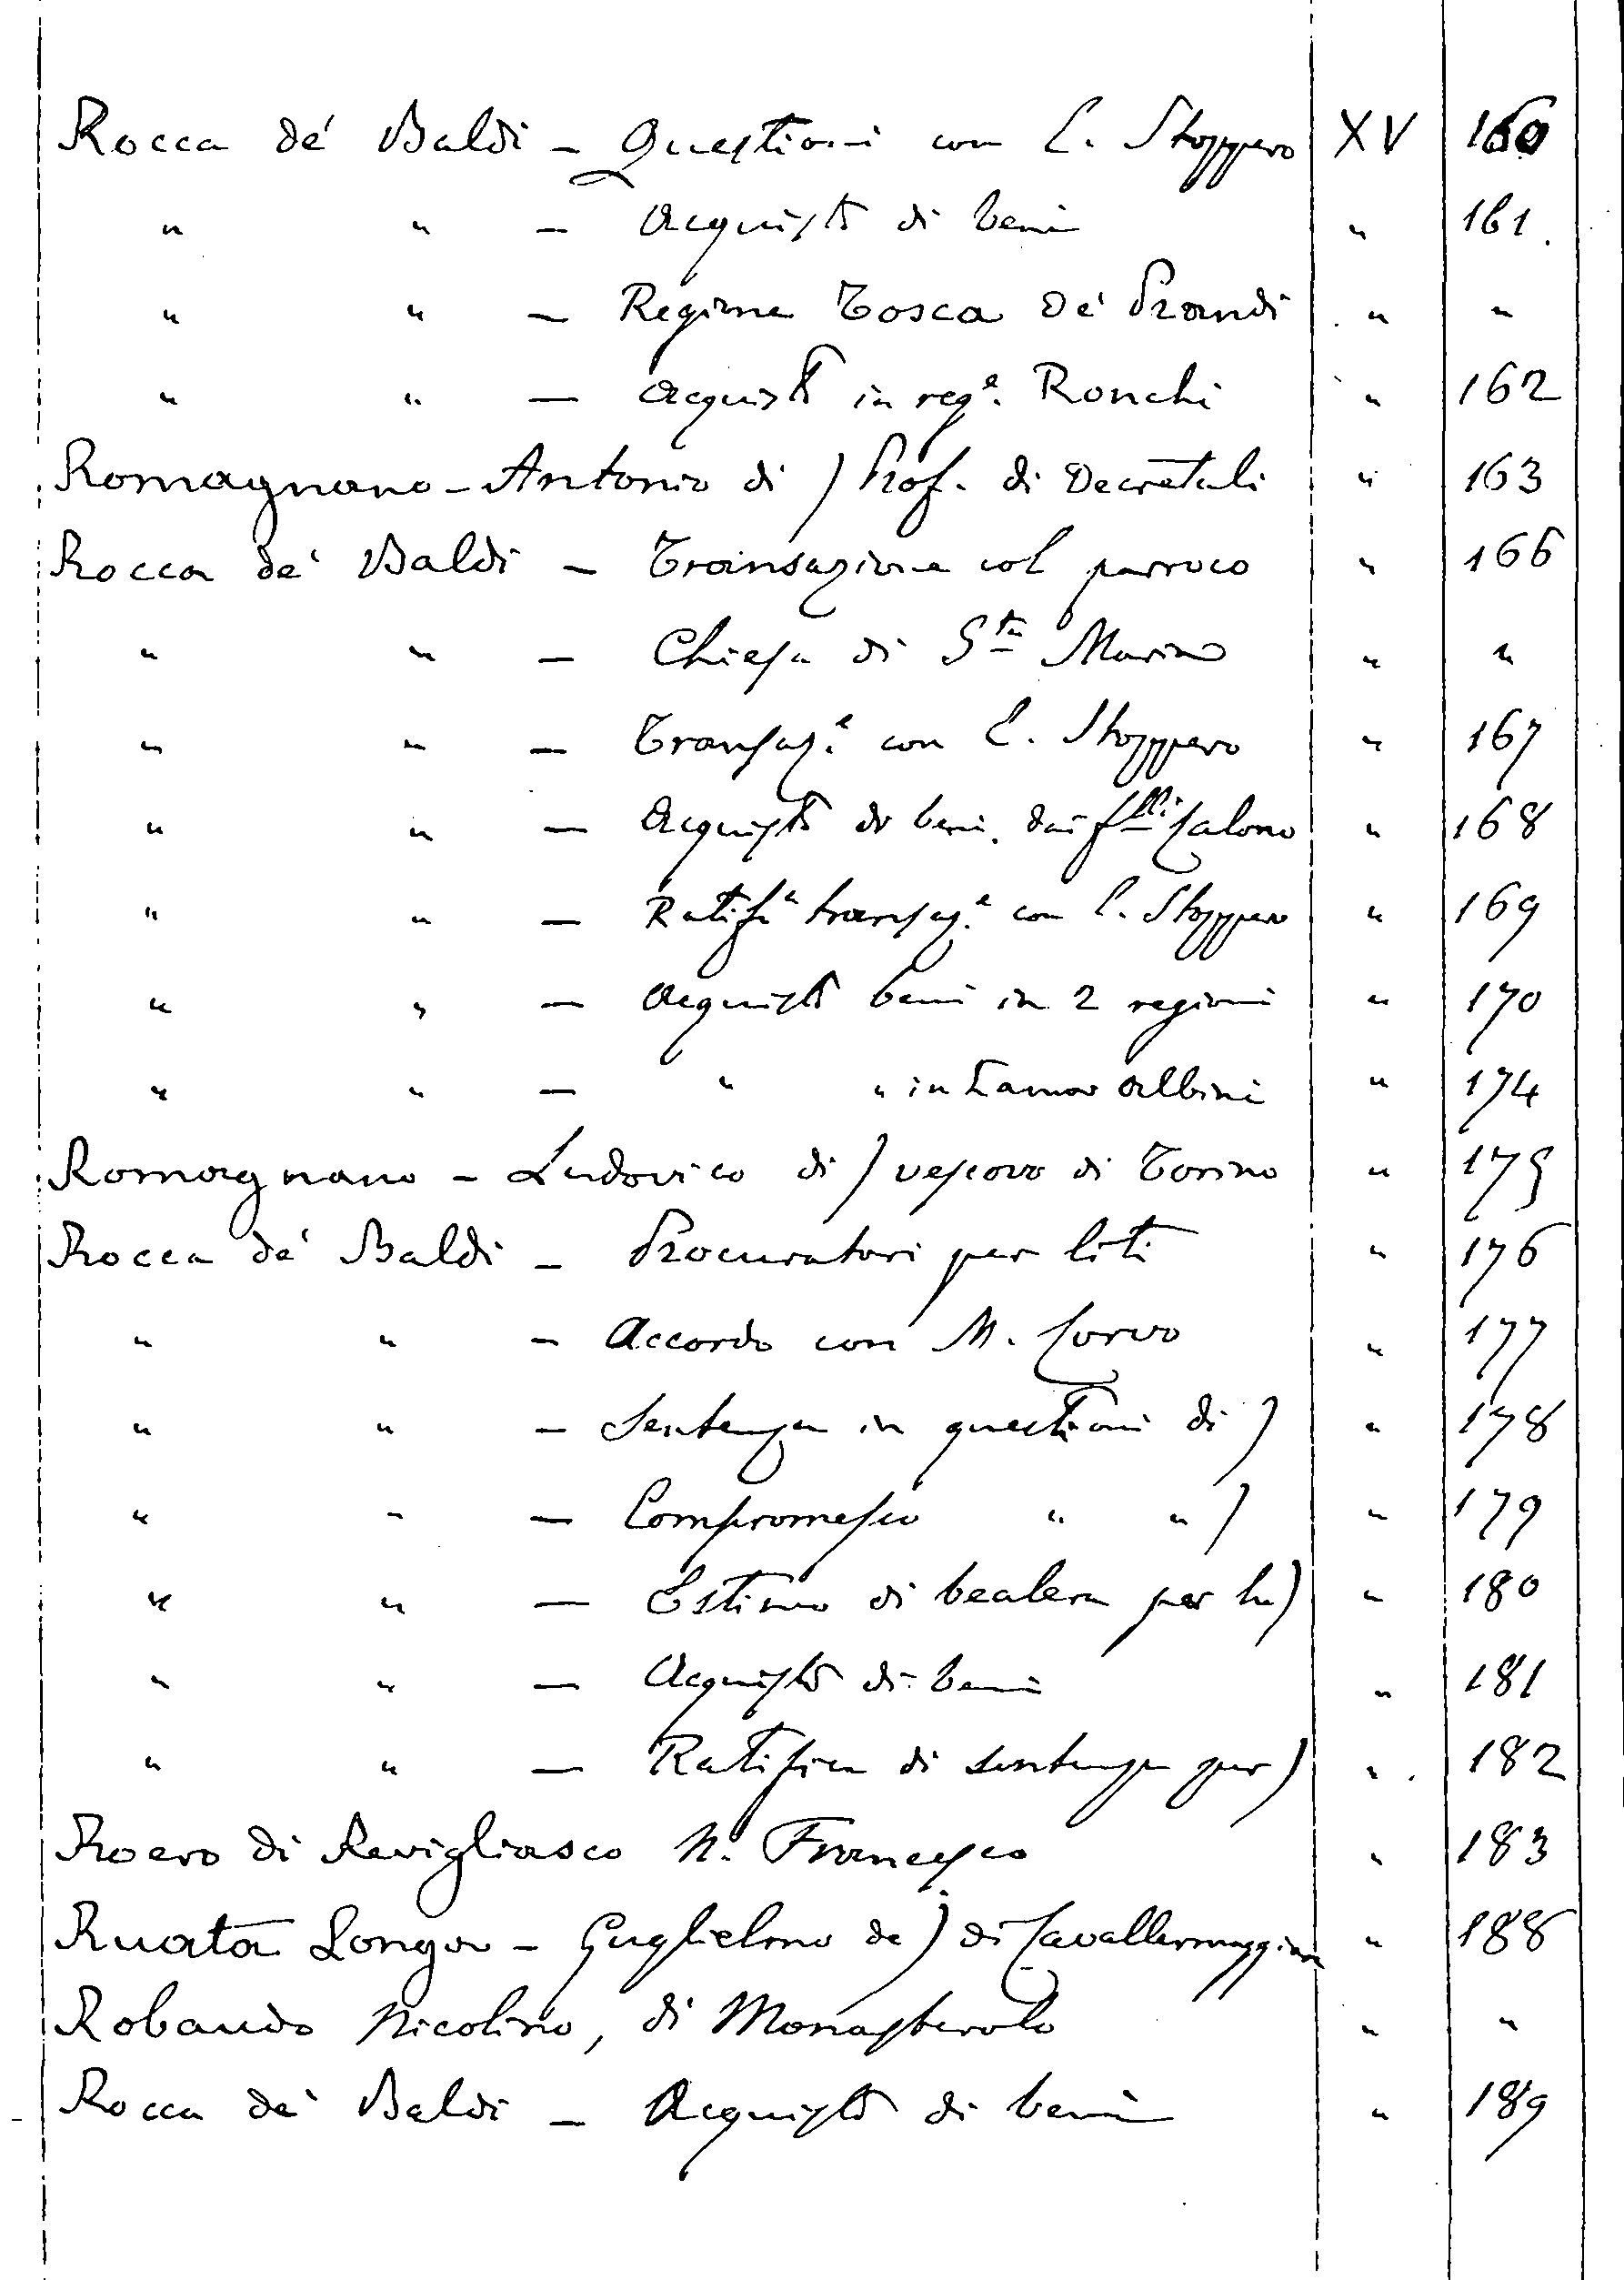 Rocca de' Baldi - Questioni con C. Stoppero XV 160
" " - Acquisto di beni " 161.
" " - Regione Tosca de' Prandi " "
" " - Acquisto in regᵉ. Ronchi " 162
Romagnano - Antonio di) Prof. di Decretali " 163
Rocca de' Baldi - Transazione col parroco " 166
" " - Chiesa di Sᵗᵃ Maria " "
" " - Transazᵉ con C. Stoppero " 167
" " - Acquisto di beni dai fˡˡⁱ Calono " 168
" " - Ratifᵃ transazᵉ con C. Stoppero " 169
" " - Acquisto beni in 2 regioni " 170
" " - " " in Lama Albini " 174
Romagnano - Ludovico di) vescovo di Torino " 175
Rocca de' Baldi - Procuratori per liti " 176
" " - Accordo con M. Corvo " 177
" " - Sentenza in questioni di) " 178
" " - Compromesso " ") " 179
" " - Estimo di bealera per la) " 180
" " - Acquisto di beni " 181
" " - Ratifica di sentenza per) " 182
Roero di Revigliasco N. Francesco " 183
Ruata Longa - Guglielmo de) di Cavallermaggiore " 188
Robaudo Nicolino, di Monasterolo " "
Rocca de' Baldi - Acquisto di beni " 189